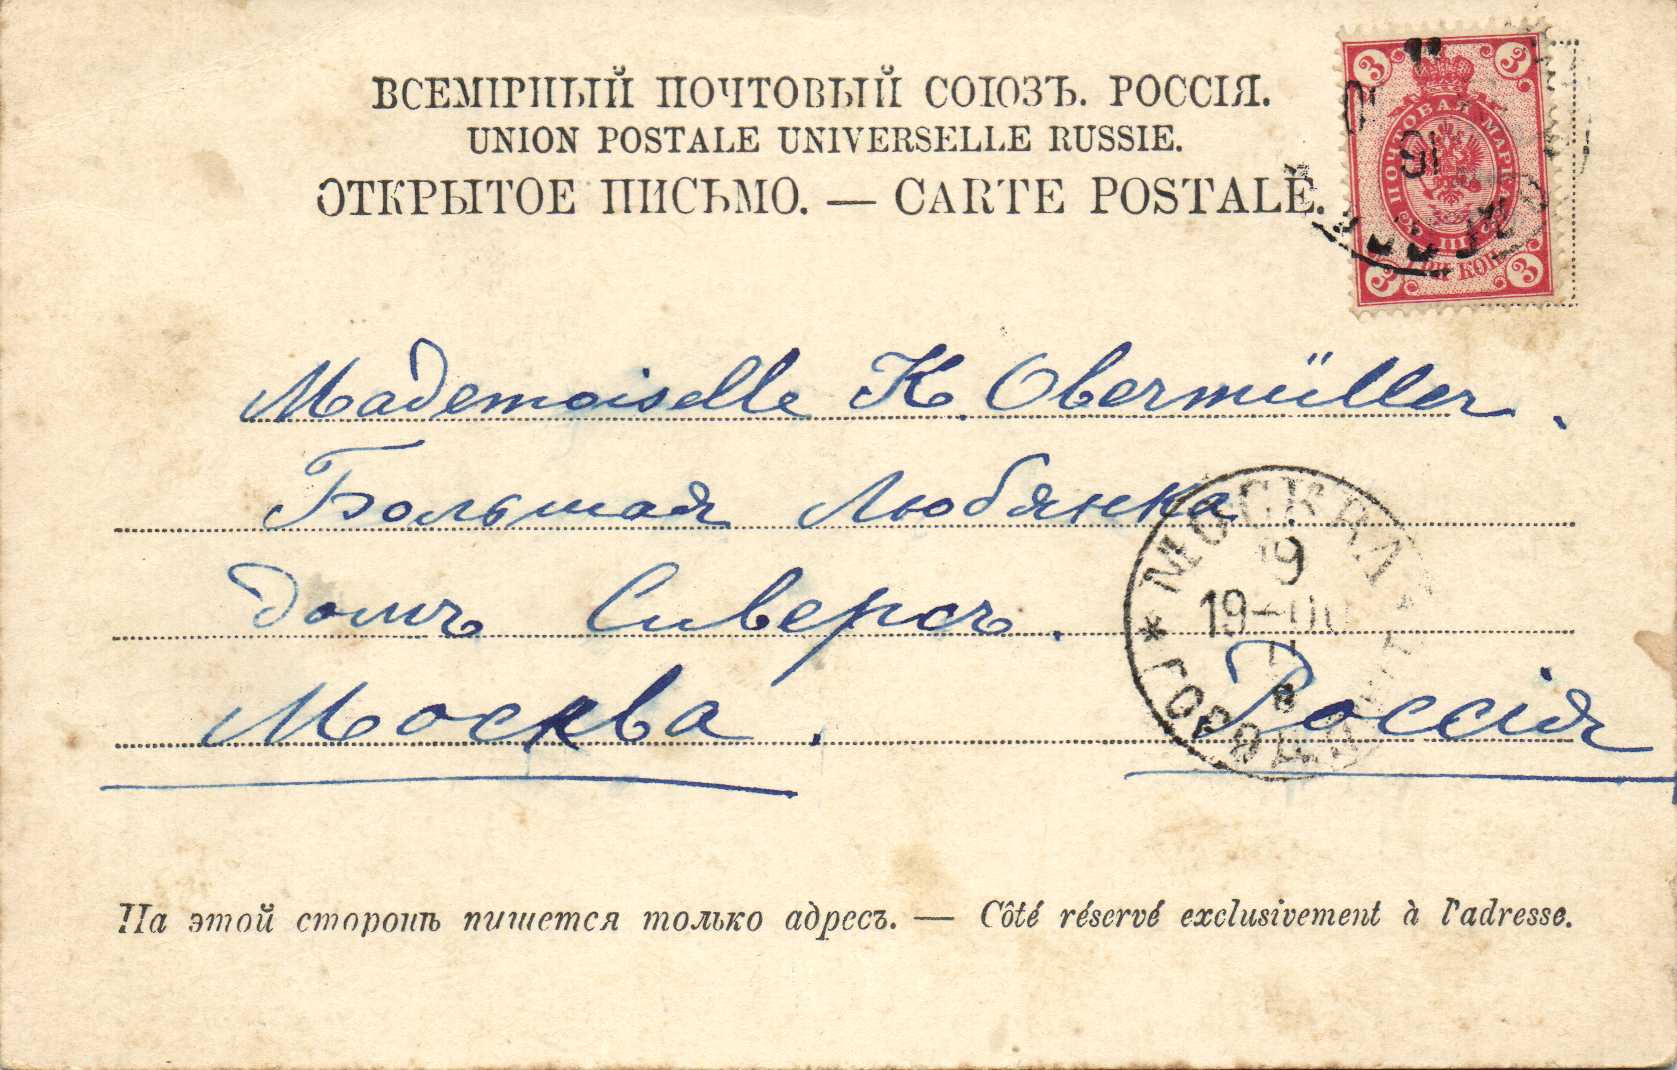 ВСЕМІРНЫЙ ПОЧТОВЫЙ СОЮЗЪ. РОССІЯ.
UNION POSTALE UNIVERSELLE RUSSIE.
ОТКРЫТОЕ ПИСЬМО. — CARTE POSTALE.
3 3
ПОЧТОВАЯ МАРКА
3 3
Mademoiselle K. Obermüller.
Большая Любянка
Домъ Сиверсъ.
Москва. Россія
МОСКВА
19
На этой сторонѣ пишется только адресъ. — Côté réservé exclusivement à l'adresse.